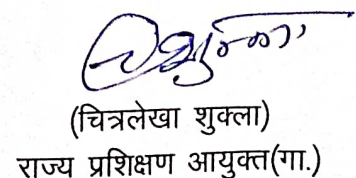 (चित्रलेखा शुक्ला)
राज्य प्रशिक्षण आयुक्त(गा.)